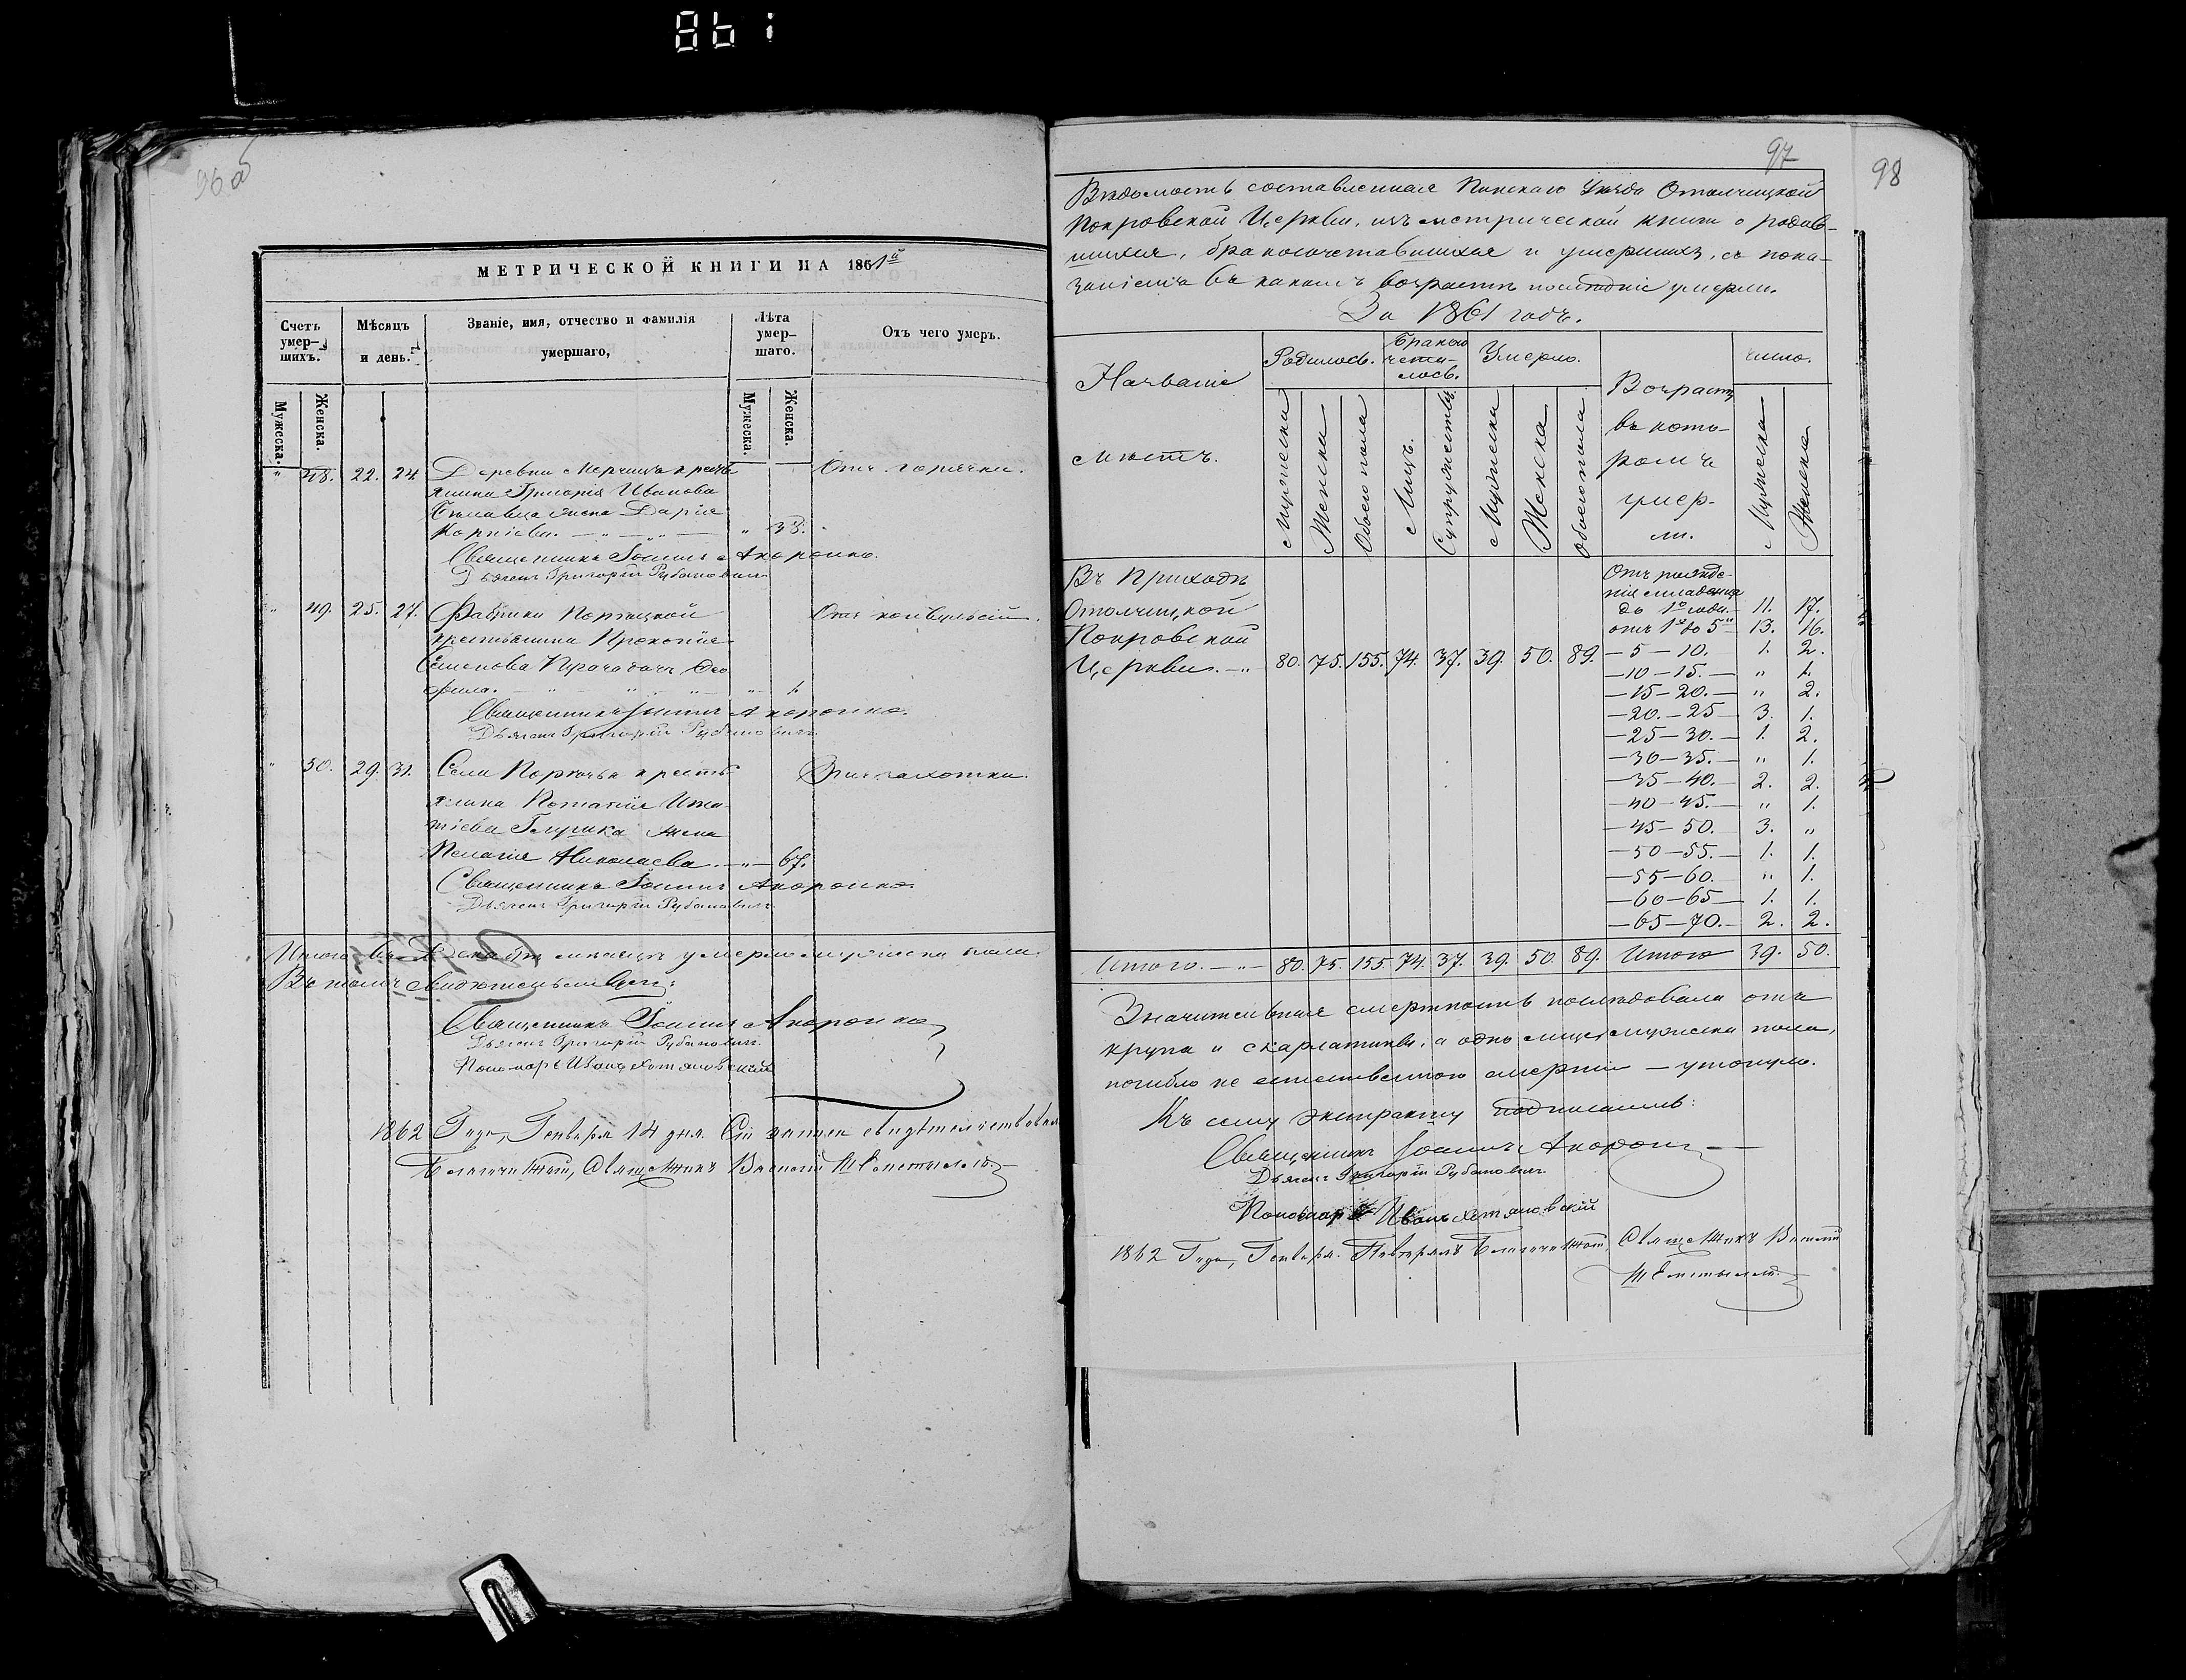 96 об
МЕТРИЧЕСКОЙ КНИГИ НА 1861й
Счетъ умер-шихъ.
Мѣсяцъ и день.
Званіе, имя, отчество и фамилія умершаго,
Лѣта умер-шаго.
Отъ чего умеръ.
Мужеска. Женска.
Мужеска. Женска.
" 48. 22. 24. Деревни Мерчицъ кресть- Отъ горячки.
янина Григорія Иванова
жена Дарія
Корніева. — " — " — " 38.
Священникъ Іоаннъ
Дьячекъ Григорій Рубановичъ
" 49. 25. 27. Фабрики Порѣцкой Отъ конвульсій.
крестьянина Прокопія
Семенова дочь Ѳео
фила. — " — " — " — " 1.
Священникъ Іоаннъ
Дьячекъ Григорій Рубановичъ
" 50. 29. 31. Села Порѣчья кресть Отъ чахотки.
янина Потапія Игна-
тіева жена
Пелагія Николаева. — " — 67.
Священникъ Іоаннъ
Дьячекъ Григорій Рубановичъ
Итого въ Декабрѣ мѣсяцѣ умерло мужеска пола
Въ томъ свидѣтельствуемъ:
Священникъ Іоаннъ
Дьячекъ Григорій Рубановичъ
Пономарь Иванъ
1862 Года, Генваря 14 дня. Сіи записи свидѣтельствовалъ
Благочинный, Священникъ Василій
97
98
Вѣдомость составленная Пинскаго Уѣзда Отолчицкой
Покровской Церкви, изъ метрической книги о родив-
шихся, бракосочетавшихся и умершихъ, съ пока-
заніемъ въ какомъ возрастѣ послѣдніе умерли.
За 1861 годъ.
Названіе мѣстъ.
Родилось.
Бракосо-чета-лось.
Умерло.
Возрастъ въ кото-ромъ умер-ли.
число.
Мужеска Женска Обоего пола Лицъ. Супружествъ. Мужеска Женска Обоего пола Мужеска Женска
Въ Приходѣ Отъ рожде-
нія младенца
Отолчицкой до 1го года. 11. 17.
Покровской отъ 1го до 5и 13. 16.
Церкви. — " 80. 75. 155. 74. 37. 39. 50. 89. — 5 — 10. 1. 2.
— 10 — 15. — " 1.
— 15 — 20. — " 2.
— 20. — 25 — 3. 1.
— 25 — 30. — 1. 2.
— 30 — 35. — " 1.
— 35 — 40. — 2. 2.
— 40 — 45. — " 1.
— 45 — 50. 3. "
— 50 — 55. — 1. 1.
— 55 — 60. " 1.
— 60 — 65 — 1. 1.
— 65 — 70. — 2. 2.
Итого. — " — 80. 75. 155. 74. 37. 39. 50. 89. Итого 39. 50.
Значительная смертность послѣдовала отъ
крупа и скарлатины, а одно лице мужеска пола,
погибло не естественною смертію — утонуло.
Къ сему экстракту подписались:
Священникъ Іоаннъ
Дьячекъ Григорій Рубановичъ
Пономарь Иванъ
1862 Года, Генваря. Благочинный Священникъ Василій